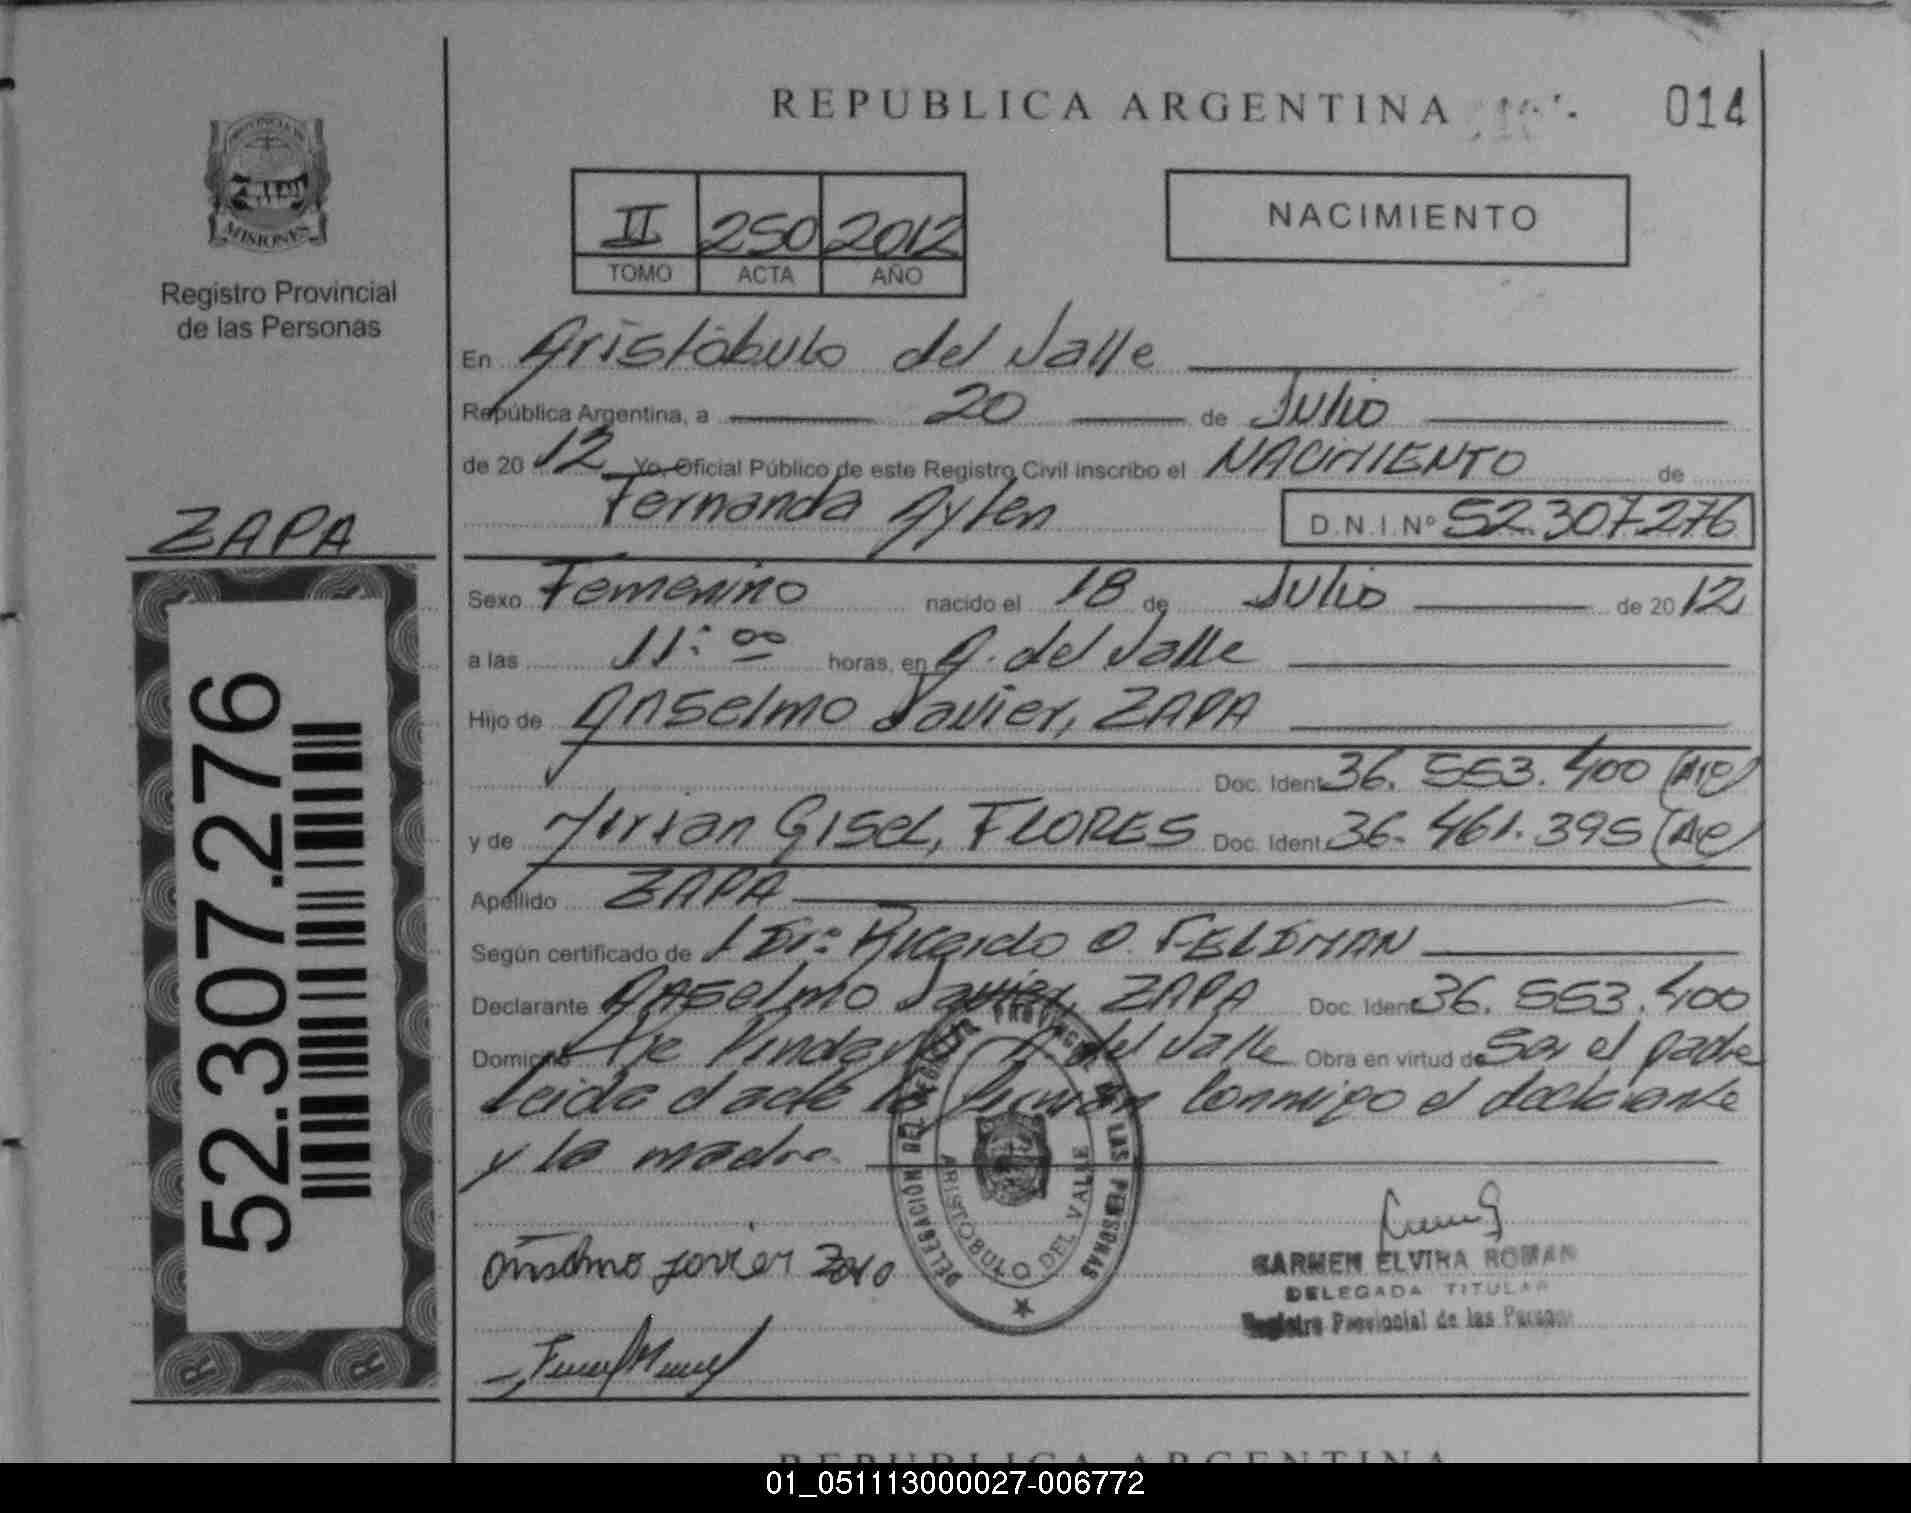 REPUBLICA ARGENTINA
014
PROVINCIA DE
MISIONES
Registro Provincial
de las Personas
II 250 2012
TOMO ACTA AÑO
NACIMIENTO
En Aristóbulo del Valle
República Argentina, a 20 de Julio
de 20 12 Yo, Oficial Público de este Registro Civil inscribo el NACIMIENTO de
Fernanda Aylen
D.N.I.Nº 52.307.276
ZAPA
Sexo Femenino nacido el 18 de Julio de 20 12
a las 11:00 horas, en A. del Valle
Hijo de Anselmo Javier, ZAPA
Doc. Ident. 36.553.400 (Arg)
y de Mirian Gisel, FLORES Doc. Ident. 36.461.395 (Arg)
Apellido ZAPA
Según certificado de Dr: Ricardo O. FELDMAN
Declarante Anselmo Javier, ZAPA Doc. Ident. 36.553.400
Domicilio A. del Valle Obra en virtud de Ser el padre
Leida el acta la firman conmigo el declarante
y la madre
52.307.276
DELEGACION DEL REGISTRO PROVINCIAL DE LAS PERSONAS
ARISTOBULO DEL VALLE
Anselmo Javier Zapa
CARMEN ELVIRA ROMAN
DELEGADA TITULAR
Registro Provincial de las Personas
REPUBLICA ARGENTINA
01_051113000027-006772